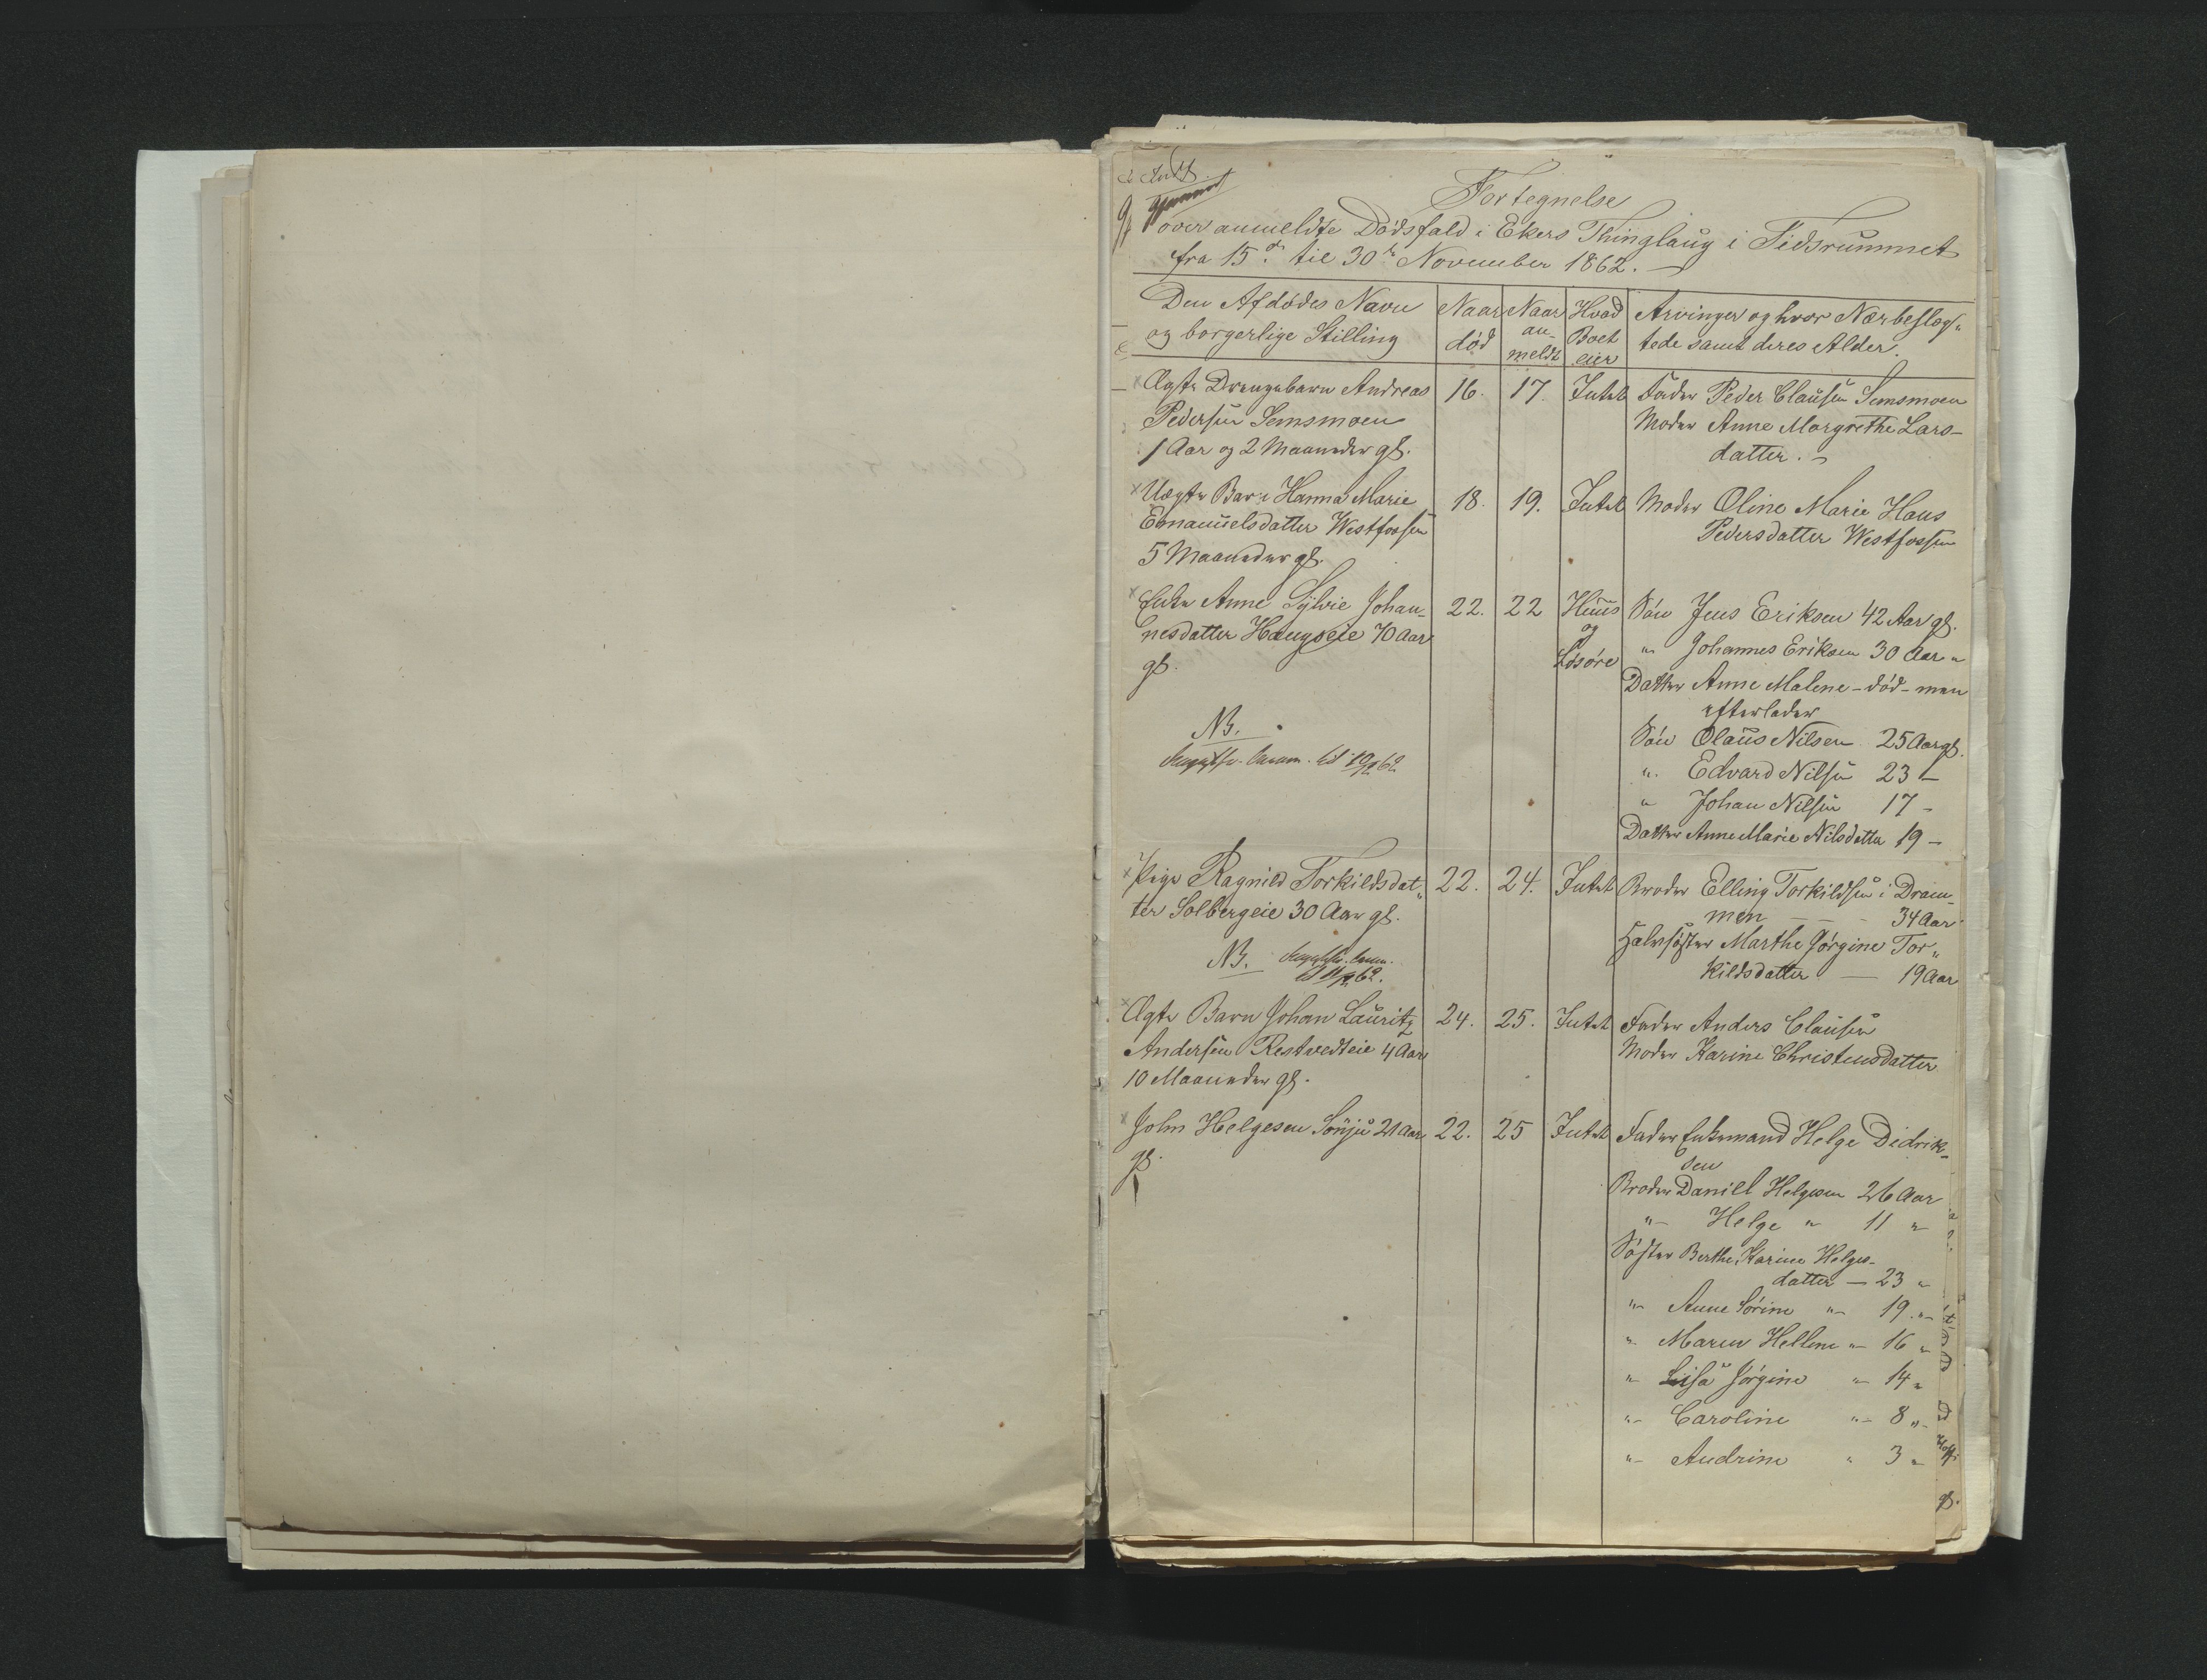 Fortegnelse
over anmeldte Dødsfald i Ekers Thinglaug i Tidsrummet
fra 15de til 30te November 1862.
Den Afdødes Navn
og borgerlige Stilling
Naar
død
Naar
an-
meldt
Hvad
Boet
eier
Arvinger og hvor Nærbeslæg-
tede samt deres Alder.
Ægte Drengebarn Andreas
Pedersen Semsmoen
1 Aar og 2 Maaneder gl.
16.
17.
Intet
Fader Peder Clausen Semsmoen
Moder Anne Margrethe Lars-
datter.
Uægte Barn Hanna Marie
Emanuelsdatter Westfossen
5 Maaneder gl.
18.
19.
Intet
Moder Oline Marie Hans
Pedersdatter Westfossen
Enke Anne Sylvie Johan-
nesdatter Haugseie 70 Aar
gl.
NB.
22.
22
Huus
og
Løsøre
Søn Jens Eriksen 42 Aar gl.
" Johannes Eriksen 30 Aar "
Datter Anne Malene - død - men
efterlader
Søn Olaus Nilsen 25 Aar gl.
" Edvard Nilsen 23 -
" Johan Nilsen 17 -
Datter Anne Marie Nilsdatter 19 -
Pige Ragnild Torkildsdat-
ter Solbergeie 30 Aar gl.
NB.
22.
24.
Intet
Broder Elling Torkildsen i Dram-
men - - - 34 Aar
Halvsøster Marthe Jørgine Tor-
kildsdatter - 19 Aar
Ægte Barn Johan Lauritz
Andersen Restvedteie 4 Aar
10 Maaneder gl.
24.
25.
Intet
Fader Anders Clausen
Moder Karine Christensdatter
John Helgesen Sønju 21 Aar
gl.
22.
25
Intet
Fader Enkemand Helge Didrik-
sen
Broder Daniel Helgesen 26 Aar
" Helge " 11 "
Søster Berthe Karine Helges-
datter - 23 "
" Anne Sørine " 19 "
" Maren Hellene " 16 "
" Lisa Jørgine " 14 "
" Caroline " 8 "
" Andrine " 3 "